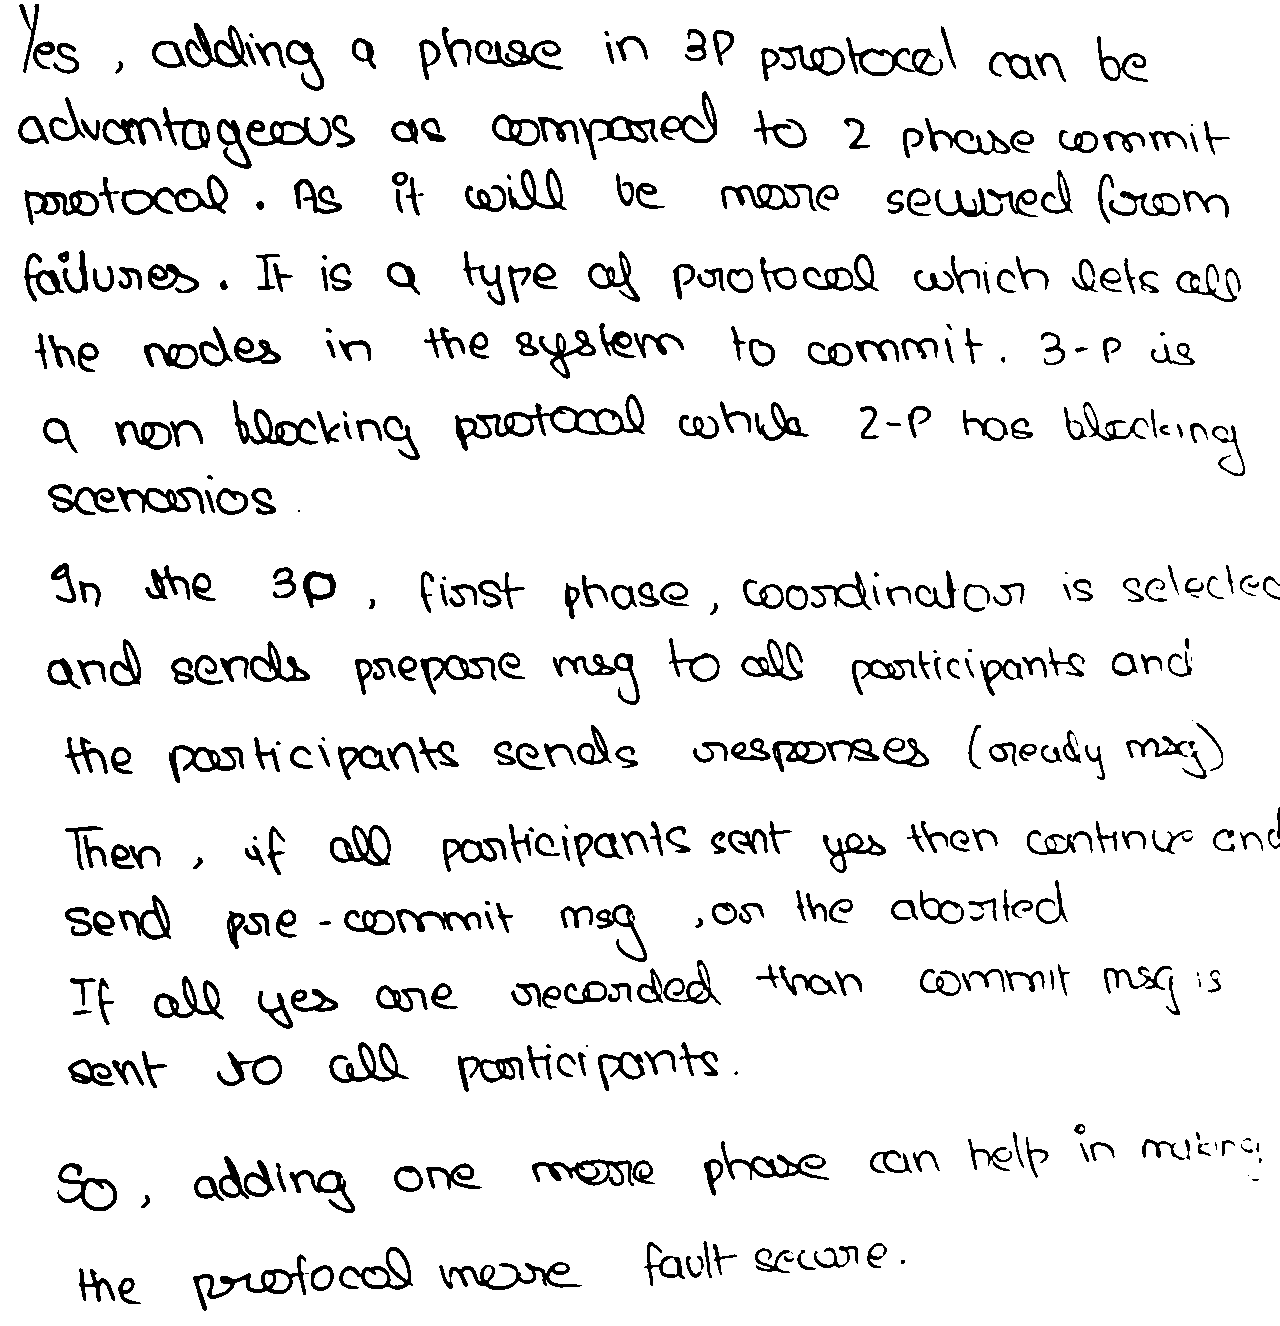 Yes, adding a phase in 3P protocol can be
advantageous as compared to 2 phase commit
protocal. As it will be more secured from
failures. It is a type of protocol which lets all
the nodes in the system to commit. 3-P is
a non blocking protocal while 2-P has blocking
scenarios.
In the 3P, first phase, coordinator is selected
and sends prepare msg to all participants and
the participants sends responses (ready msg)
Then, if all participants sent yes then continue and
send pre-commit msg, or the aborted
If all yes are recorded than commit msg is
sent to all participants.
So, adding one more phase can help in making
the protocol more fault secure.